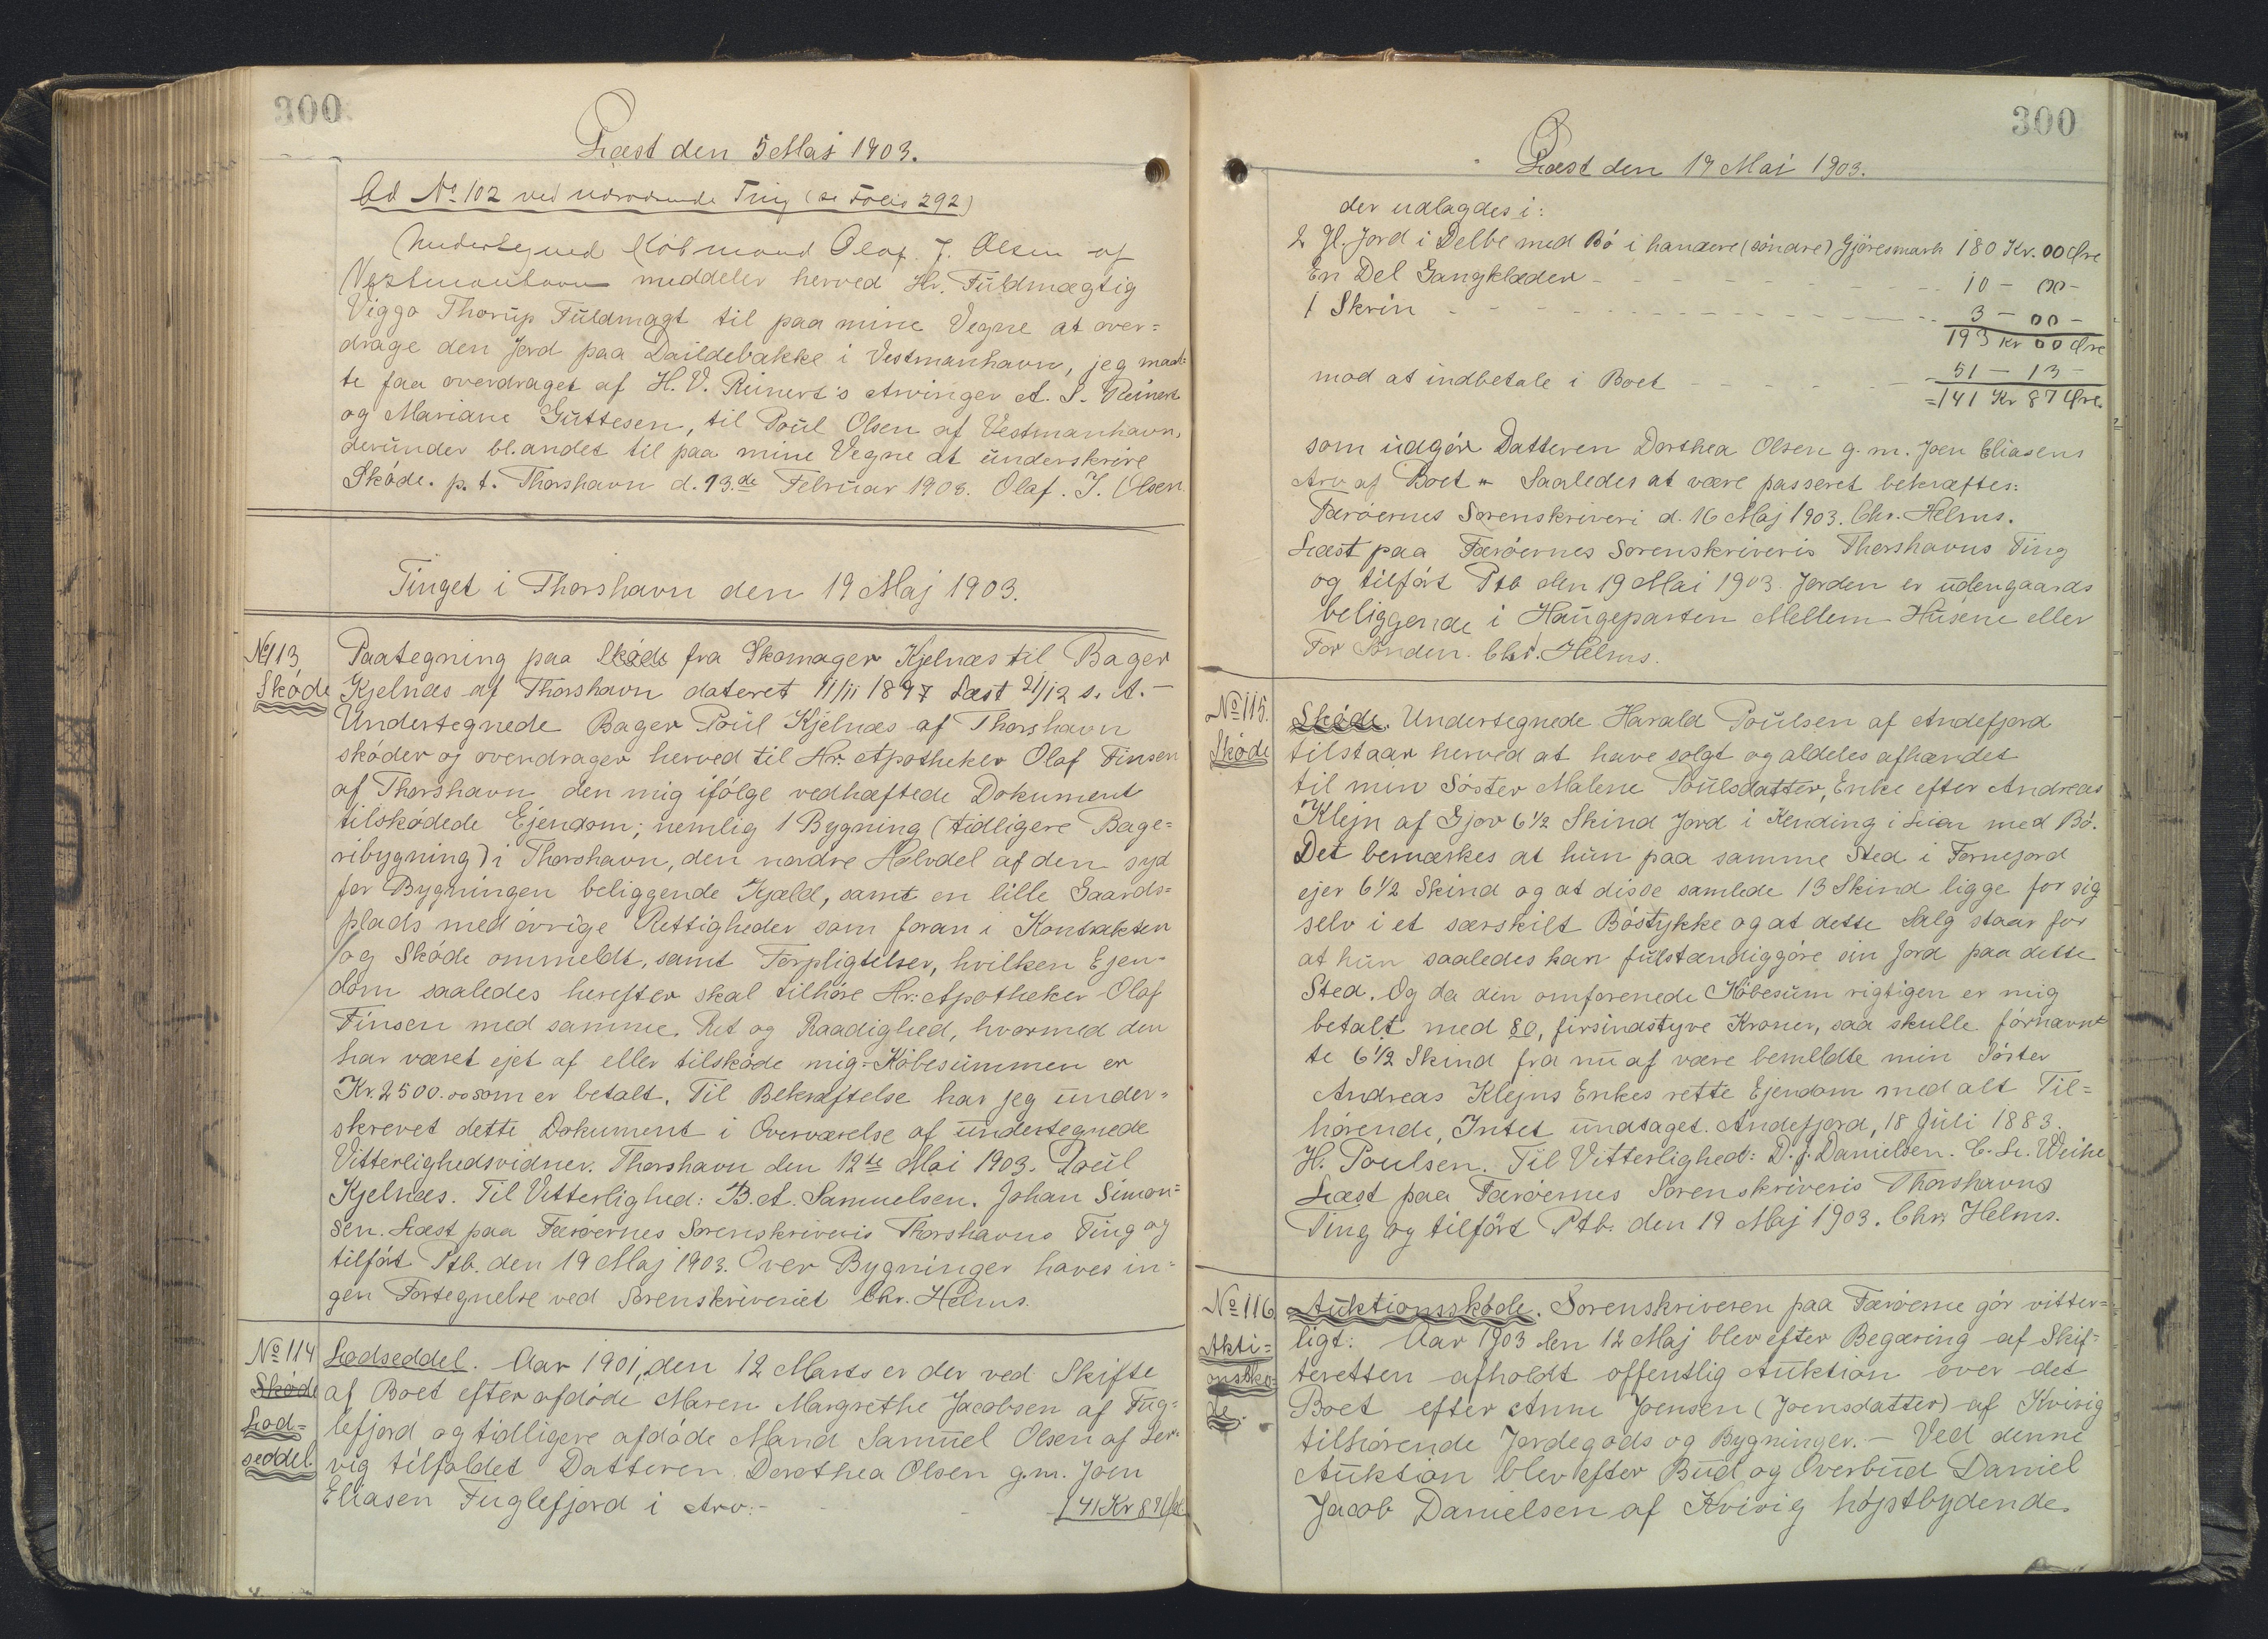 300
Læst den 5 Maj 1903.
Ad No 102 ved nærværende Ting (se Folio 292)
Undertegned Købmand Olaf. J. Olsen af
Vestmanhavn meddeler herved Hr. Fuldmægtig
Viggo Thorup Fuldmagt til paa mine Vegne at over=
drage den Jord paa Daildebakke i Vestmanhavn, jeg maat=
te faa overdraget af H. V. Reinert's Arvinger A. S. Reinert
og Mariane Guttesen, til Poul Olsen af Vestmanhavn,
derunder bl.andet til paa mine Vegne at underskrive
Skøde. p. t. Thorshavn d. 13.de Februar 1903. Olaf. J. Olsen
Tinget i Thorshavn den 19 Maj 1903.
No 113
Skøde
Paategning paa Skøde fra Skomager Kjelnæs til Bager
Kjelnæs af Thorshavn dateret 11/11 1897 Læst 21/12 s. A. —
Undertegnede Bager Poul Kjelnæs af Thorshavn
skøder og overdrager herved til Hr. Apotheker Olaf Finsen
af Thorshavn den mig ifølge vedhæftede Dokument
tilskødede Ejendom; nemlig 1 Bygning (tidligere Bage=
ribygning) i Thorshavn, den nordre Halvdel af den syd
for Bygningen beliggende Kjæld, samt en lille Gaards=
plads med øvrige Rettigheder som foran i Kontrakten
og Skøde ommeldt, samt Forpligtelser, hvilken Ejen=
dom saaledes herefter skal tilhøre Hr. Apotheker Olaf
Finsen med samme Ret og Raadighed, hvormed den
har været ejet af eller tilskøde mig. Købesummen er
Kr. 2500.00 som er betalt. Til Bekræftelse har jeg under=
skrevet dette Dokument i Overværelse af undertegnede
Vitterlighedsvidner. Thorshavn den 12te Mai 1903. Poul
Kjelnæs. Til Vitterlighed: B. A. Samuelsen. Johan Simon=
sen. Læst paa Færøernes Sorenskriveris Thorshavns Ting og
tilført Ptb. den 19 Maj 1903. Over Bygninger haves in=
gen Fortegnelse ved Sorenskriveriet Chr. Helms.
No 114
Skøde
Lod=
seddel.
Lodseddel. Aar 1901, den 12 Marts er der ved Skifte
af Boet efter afdøde Maren Margrethe Jacobsen af Fug=
lefjord og tidligere afdøde Mand Samuel Olsen af Ler=
vig tilfaldet Datteren Dorothea Olsen g.m. Joen
Eliasen Fuglefjord i Arv. - 141 Kr 87 Øre
300
Læst den 19 Mai 1903.
der udlagdes i:
2 Gl. Jord i Delbe med Bø i handere (søndre) Gjøresmark 180 Kr. 00 Øre
En Del Gangklæder - 10 - 00 -
1 Skrin - 3 - 00 -
193 Kr 00 Øre
mod at indbetale i Boet - 51 - 13 -
= 141 Kr 87 Øre.
som udgør Datteren Dorthea Olsen g. m. Joen Eliasens
Arv af Boet - Saaledes at være passeret bekræftes:
Færøernes Sorenskriveri d. 16 Maj 1903. Chr. Helms.
Læst paa Færøernes Sorenskriveris Thorshavns Ting
og tilført Ptb den 19 Mai 1903. Jorden er udengaards
beliggende i Haugeparten Mellem Husene eller
For Sønden. Chr. Helms.
No 115.
Skøde
Skøde. Undertegnede Harald Poulsen af Andefjord
tilstaar herved at have solgt og aldeles afhændet
til min Søster Malene Poulsdatter, Enke efter Andreas
Klejn af Gjov 6½ Skind Jord i Kending i Liar med Bø.
Det bemærkes at hun paa samme Sted i Fornejord
ejer 6½ Skind og at disse samlede 13 Skind ligge for sig
selv i et særskilt Bøstykke og at dette Salg staar for
at hun saaledes kan fulstændiggøre sin Jord paa dette
Sted. Og da den omforenede Købesum rigtigen er mig
betalt med 80, firsindstyve Kroner, saa skulle førnævn=
te 6½ Skind fra nu af være bemeldte min Søster
Andreas Klejns Enkes rette Ejendom med alt Til=
hørende, Intet undtaget. Andefjord, 18 Juli 1883.
H. Poulsen. Til Vitterlighed: D. J. Danielsen. C. L. Weihe
Læst paa Færøernes Sorenskriveris Thorshavns
Ting og tilført Ptb. den 19 Maj 1903. Chr. Helms.
No 116
Akti=
onsskø=
de.
Auktionsskøde. Sorenskriveren paa Færøerne gør vitter=
ligt: Aar 1903 den 12 Maj blev efter Begæring af Skif=
teretten afholdt offentlig Auktion over det
Boet efter Anne Joensen (Joensdatter) af Kvivig
tilhørende Jordegods og Bygninger. — Ved denne
Auktion blev efter Bud og Overbud Daniel
Jacob Danielsen af Kvivig højstbydende